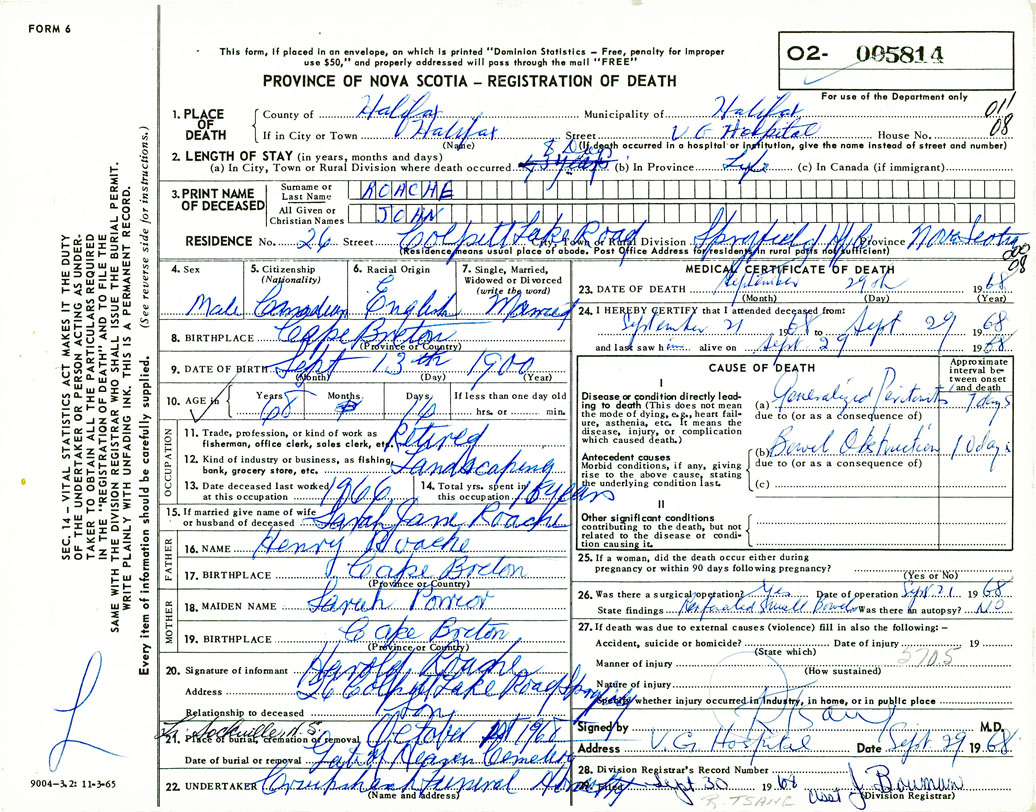 FORM 6
This form, if placed in an envelope, on which is printed "Dominion Statistics – Free, penalty for improper
use $50," and properly addressed will pass through the mail "FREE"
PROVINCE OF NOVA SCOTIA – REGISTRATION OF DEATH
O2- 005814
For use of the Department only
011
08
1. PLACE OF DEATH
County of Halifax Municipality of Halifax
If in City or Town Halifax Street V G Hospital House No.
(Name) (If death occurred in a hospital or institution, give the name instead of street and number)
2. LENGTH OF STAY (in years, months and days)
8 Days
(a) In City, Town or Rural Division where death occurred (b) In Province Life (c) In Canada (if immigrant)
3. PRINT NAME OF DECEASED
Surname or Last Name ROACHE
All Given or Christian Names JOHN
RESIDENCE No. 26 Street Colpitt Lake Road City, Town or Rural Division Spryfield Province Nova Scotia
(Residence means usual place of abode. Post Office Address for residents in rural parts not sufficient)
08
4. Sex Male
5. Citizenship (Nationality) Canadian
6. Racial Origin English
7. Single, Married, Widowed or Divorced (write the word) Married
8. BIRTHPLACE Cape Breton
(Province or Country)
9. DATE OF BIRTH Sept 13th 1900
(Month) (Day) (Year)
10. AGE in Years 68 Months Days 16 If less than one day old
hrs. or min.
OCCUPATION
11. Trade, profession, or kind of work as fisherman, office clerk, sales clerk, etc. Retired
12. Kind of industry or business, as fishing, bank, grocery store, etc. Landscaping
13. Date deceased last worked at this occupation 1966 14. Total yrs. spent in this occupation 15 years
15. If married give name of wife or husband of deceased Sarah Jane Roache
FATHER
16. NAME Henry Roache
17. BIRTHPLACE Cape Breton
(Province or Country)
MOTHER
18. MAIDEN NAME Sarah
19. BIRTHPLACE Cape Breton
(Province or Country)
20. Signature of informant Harold Roache
Address 26 Colpitt Lake Road Spryfield
Relationship to deceased Son
L. Sackville N.S.
21. Place of burial, cremation or removal October 1st 1968
Date of burial or removal Gate of Heaven Cemetery
22. UNDERTAKER Cruikshank Funeral Home
(Name and Address)
MEDICAL CERTIFICATE OF DEATH
23. DATE OF DEATH September 29th 1968
(Month) (Day) (Year)
24. I HEREBY CERTIFY that I attended deceased from:
September 21 1968 to Sept 29 1968
and last saw him alive on Sept 29 1968
CAUSE OF DEATH
Approximate interval between onset and death
I
Disease or condition directly leading to death (This does not mean the mode of dying, e.g., heart failure, asthenia, etc. It means the disease, injury, or complication which caused death.)
(a) Generalized Peritonitis 9 days
due to (or as a consequence of)
Antecedent causes
Morbid conditions, if any, giving rise to the above cause, stating the underlying condition last.
(b) Bowel Obstruction 10 days
due to (or as a consequence of)
(c)
II
Other significant conditions
contributing to the death, but not related to the disease or condition causing it.
25. If a woman, did the death occur either during
pregnancy or within 90 days following pregnancy?
(Yes or No)
26. Was there a surgical operation? Yes Date of operation Sept 21 1968
State findings Perforated Small Bowel Was there an autopsy? NO
27. If death was due to external causes (violence) fill in also the following: –
Accident, suicide or homicide? Date of injury 19
(State which) 5705
Manner of injury
(How sustained)
Nature of injury
Specify whether injury occurred in industry, in home, or in public place
Signed by R Tsang M.D.
Address V.G. Hospital Date Sept 29 1968
28. Division Registrar's Record Number
Filed Sept 30 1968 Asst J. Bowman
(Division Registrar)
R. TSANG
SEC. 14 – VITAL STATISTICS ACT MAKES IT THE DUTY
OF THE UNDERTAKER OR PERSON ACTING AS UNDER-
TAKER TO OBTAIN ALL THE PARTICULARS REQUIRED
IN THE "REGISTRATION OF DEATH" AND TO FILE THE
SAME WITH THE DIVISION REGISTRAR WHO SHALL ISSUE THE BURIAL PERMIT.
WRITE PLAINLY WITH UNFADING INK. THIS IS A PERMANENT RECORD.
Every item of information should be carefully supplied. (See reverse side for instructions.)
L
9004–3.2: 11-3-65